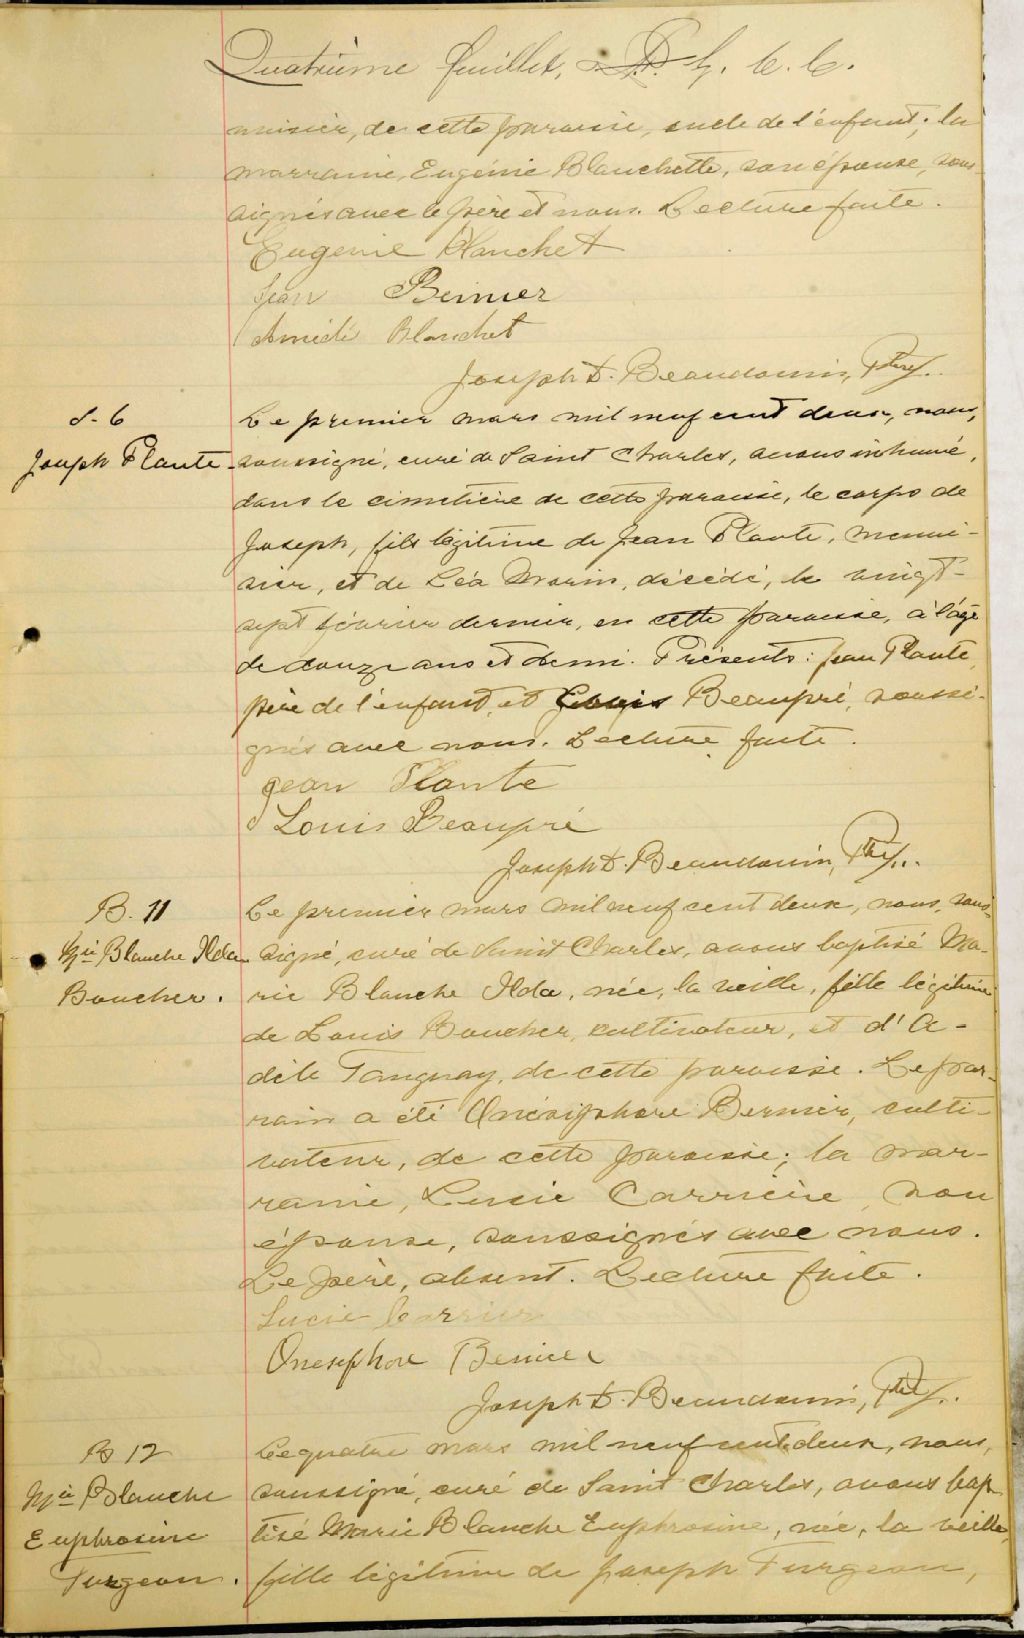 Quatrième feuillet,
nuisier, de cette paroisse, oncle de l'enfant; la
marraine, Eugénie Blanchette, son épouse, sous-
signés avec le père et nous. Lecture faite.
Eugenie Blanchet
Jean Bernier
Amédé Blanchet
Joseph D. Beaudouin, Ptre.
S. 6
Joseph Plante
Le premier mars mil neuf cent deux, nous,
soussigné, curé de Saint Charles, avons inhumé,
dans le cimetière de cette paroisse, le corps de
Joseph, fils légitime de Jean Plante, menui-
sier, et de Léa Morin, décédé, le vingt-
sept février dernier, en cette paroisse, à l'âge
de douze ans et demi. Présents: Jean Plante,
père de l'enfant, et Louis Beaupré, soussi-
gnés avec nous. Lecture faite.
Jean Plante
Louis Beaupré
Joseph D. Beaudouin, Ptre.
B. 11
Mie Blanche Ilda
Boucher.
Le premier mars mil neuf cent deux, nous, sous-
signé, curé de Saint Charles, avons baptisé Ma-
rie Blanche Ilda, née, la veille, fille légitime
de Louis Boucher, cultivateur, et d'A-
dèle Tanguay, de cette paroisse. Le par-
rain a été Onésiphore Bernier, culti-
vateur, de cette paroisse; la mar-
raine, Lucie Carrière, son
épouse, soussignés avec nous.
Le père, absent. Lecture faite.
Lucie Carrier
Onesephore Bernier
Joseph D. Beaudouin, Ptre.
B 12
Mie Blanche
Euphrosine
Turgeon.
Le quatre mars mil neuf cent deux, nous,
soussigné, curé de Saint Charles, avons bap-
tisé Marie Blanche Euphrosine, née, la veille,
fille légitime de Joseph Turgeon,